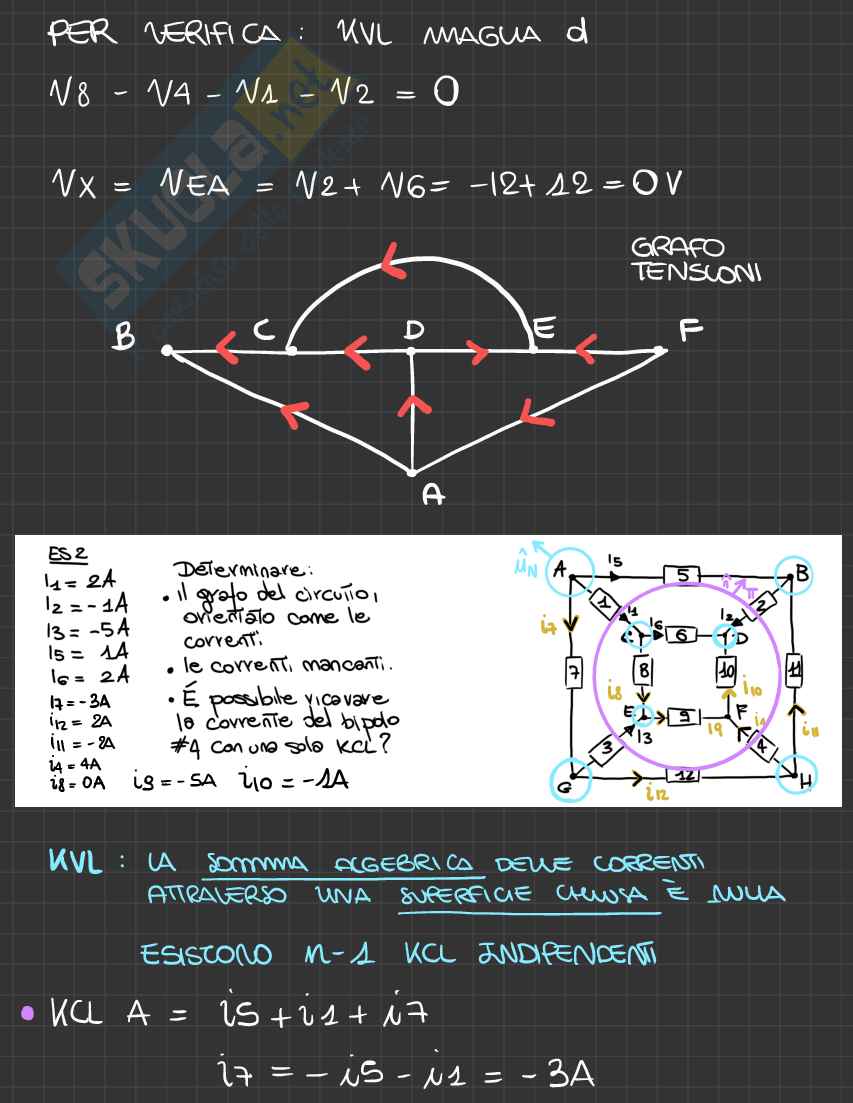 PER VERIFICA: KVL MAGLIA d
V8 - V4 - V1 - V2 = 0
VX = VEA = V2 + V6 = -12 + 12 = 0V
SKUOLA.net
GRAFO
TENSIONI
B C D E F
A
ES 2
I1 = 2A
I2 = -1A
I3 = -5A
I5 = 1A
I6 = 2A
I7 = -3A
i12 = 2A
i11 = -2A
i4 = 4A
i8 = 0A i9 = -5A i10 = -1A
Determinare:
• il grafo del circuito,
orientato come le
correnti.
• le correnti mancanti.
• È possibile ricavare
la corrente del bipolo
#4 con una sola KCL?
ûN A I5 5 n̂ π B
1 I1 2 I2
i7 C I6 6 D
7 8 10 11
i8 i10
E 9 F i4 i11
I3 i9
3 4
G 12 H
i12
KVL: LA SOMMA ALGEBRICA DELLE CORRENTI
ATTRAVERSO UNA SUPERFICIE CHIUSA È NULLA
ESISTONO n-1 KCL INDIPENDENTI
• KCL A = i5 + i1 + i7
i7 = -i5 - i1 = -3A